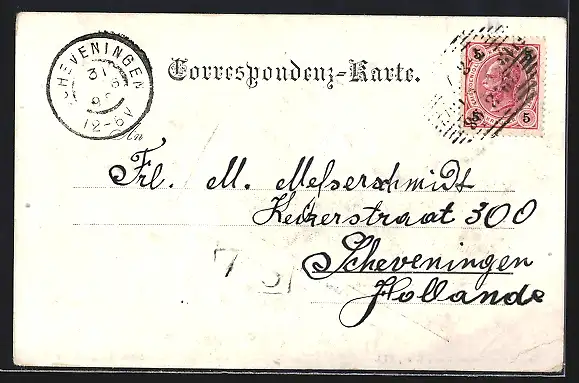 SCHEVENINGEN
12-6V
Correspondenz-Karte.
An
5 5
5 5
Frl. M. Messerschmidt
Keizerstraat 300
Scheveningen
Hollande